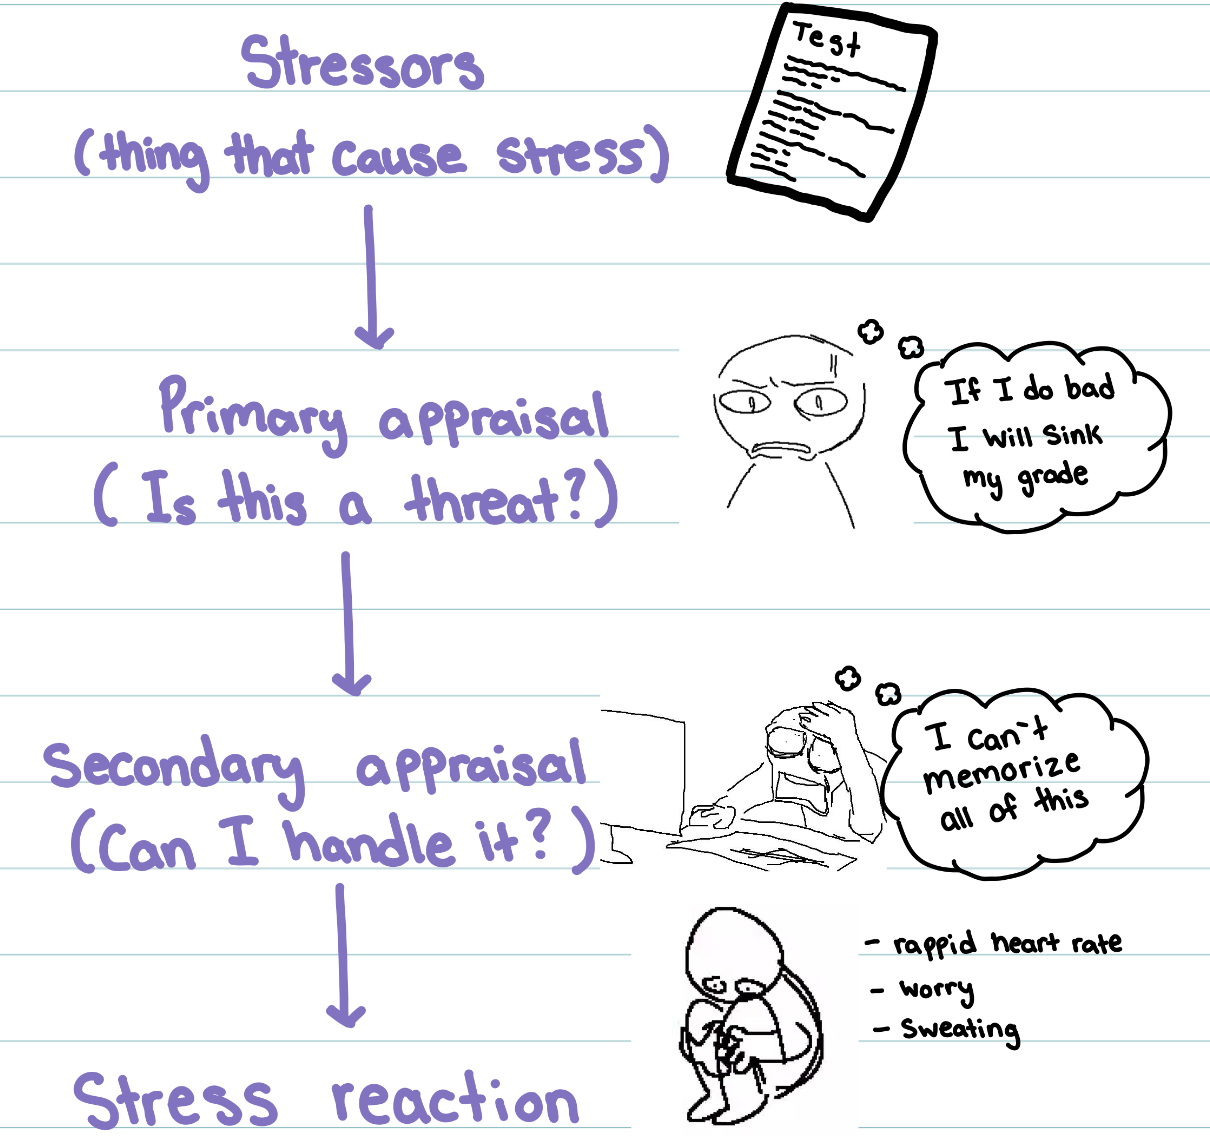 Stressors
Test
(thing that cause stress)
Primary appraisal
(Is this a threat?)
If I do bad
I will sink
my grade
Secondary appraisal
(Can I handle it?)
I can't
memorize
all of this
- rappid heart rate
- worry
- sweating
Stress reaction